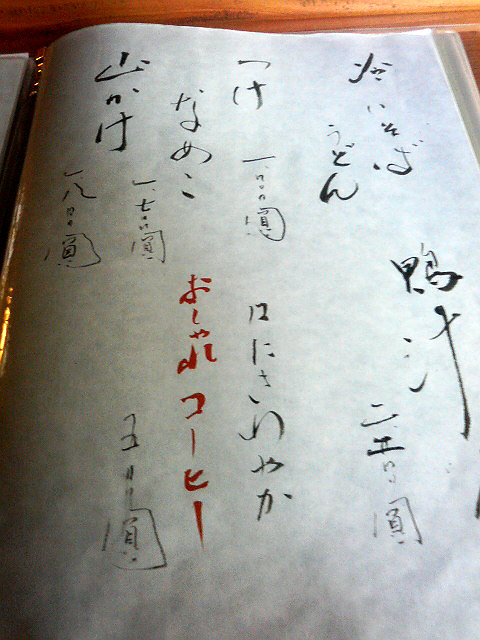 冷いそば
うどん
鴨汁
二、五〇〇圓
つけ
一、〇〇〇圓
なめこ
一、七〇〇圓
山かけ
一、八〇〇圓
口にさわやか
おしゃれコーヒー
五〇〇圓